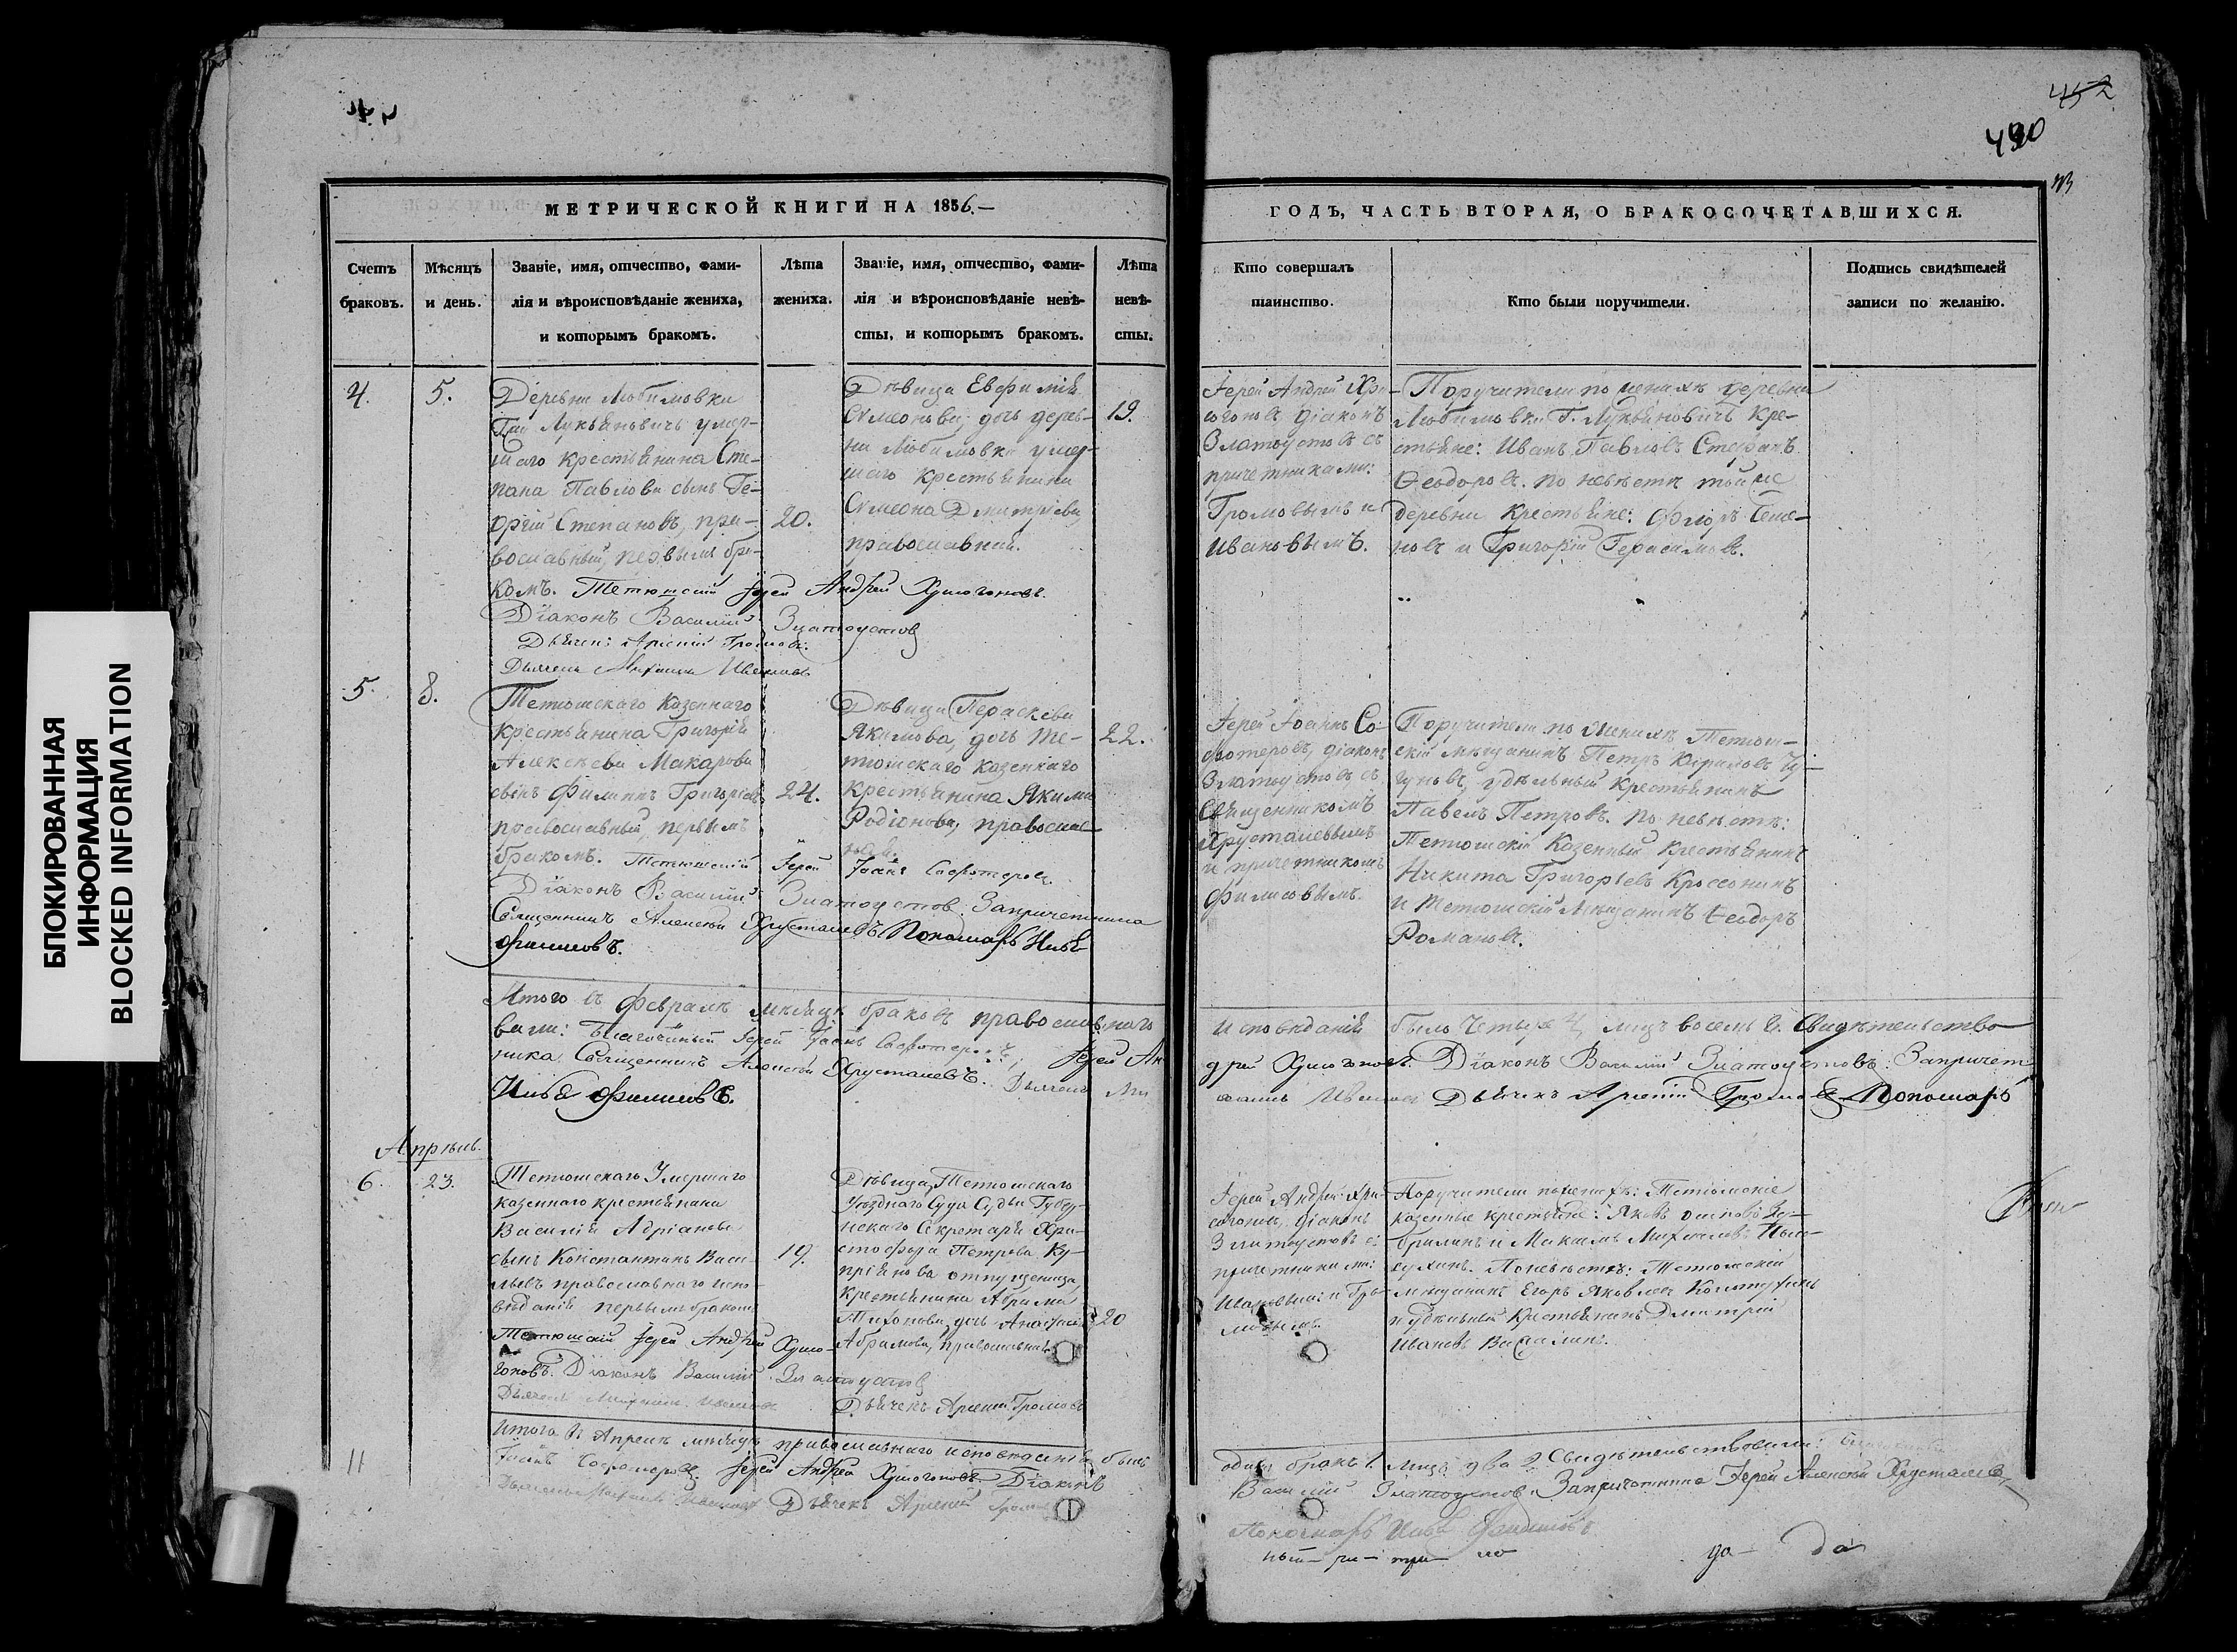 452
490
МЕТРИЧЕСКОЙ КНИГИ НА 1856.
ГОДЪ, ЧАСТЬ ВТОРАЯ, О БРАКОСОЧЕТАВШИХСЯ.
Счетъ браковъ.
Мѣсяцъ и день.
Званіе, имя, отчество, фами-
лія и вѣроисповѣданіе жениха,
и которымъ бракомъ.
Лѣта
жениха.
Званіе, имя, отчество, фами-
лія и вѣроисповѣданіе невѣ-
сты, и которымъ бракомъ.
Лѣта
невѣ-
сты.
Кто совершалъ
таинство.
Кто были поручители.
Подпись свидѣтелей
записи по желанію.
4.
5.
Деревни Любимовки
Лукьяновичъ умер-
шаго крестьянина Сте-
пана Павлова сынъ Ге-
оргій Степановъ, пра-
вославный, первымъ бра-
комъ. Тетюшскій Іерей Андрей Хрисогоновъ.
Діаконъ Василій Златоустовъ
Дьячекъ Арсеній Громовъ.
Дьячекъ Михаилъ Ивановъ
20.
Дѣвица Евфимія
Симеонова, дочь дерев-
ни Любимовки умер-
шаго крестьянина
Симеона Дмитріева,
православная.
19.
Іерей Андрей Хри-
согоновъ діаконъ
Златоустовъ съ
причетниками:
Громовымъ и
Ивановымъ.
Поручители по женихѣ деревни
Любимовки Г. Лукьяновичъ кре-
стьяне: Иванъ Павловъ Стефанъ
Ѳеодоровъ. по невѣстѣ той же
деревни крестьяне: Флоръ Семе-
новъ и Григорій Герасимовъ.
5.
8.
Тетюшскаго казеннаго
крестьянина Григорія
Алексѣева Макарова
сынъ Филиппъ Григорьевъ
православный, первымъ
бракомъ. Тетюшскій Іерей Іоаннъ Сафотеровъ
Діаконъ Василій Златоустовъ. Запричетника
Священникъ Алексѣй Хрусталевъ Пономарь
Филиповъ.
24.
Дѣвица Параскева
Якимова, дочь Те-
тюшскаго казеннаго
крестьянина Якима
Родіонова, православ-
ная.
22.
Іерей Іоаннъ Са-
фотеровъ, діаконъ
Златоустовъ съ
Священникомъ
Хрусталевымъ
и причетникомъ
Филиповымъ.
Поручители по женихѣ Тетюш-
скій мѣщанинъ Петръ Кириловъ
удѣльный крестьянинъ
Павелъ Петровъ. по невѣстѣ:
Тетюшскій казенный крестьянинъ
Никита Григорьевъ
и Тетюшскій мѣщанинъ Ѳеодоръ
Романовъ.
Итого въ Февралѣ мѣсяцѣ браковъ православнаго
исповѣданія было четыре 4, лицъ восемь 8. Свидѣтельство-
вали: Благочинный Іерей Іоаннъ Сафотеровъ, Іерей Ан-
дрей Хрисогоновъ. Діаконъ Василій Златоустовъ. Запричет-
ника Священникъ Алексѣй Хрусталевъ. Дьячекъ Ми-
хаилъ Ивановъ Дьячекъ Арсеній Громовъ Пономарь
Филиповъ.
Апрѣль.
6.
23.
Тетюшскаго Умершаго
казеннаго крестьянина
Василія Адріанова
сынъ Константинъ Васи-
льевъ православнаго испо-
вѣданія первымъ бракомъ
Тетюшскій Іерей Андрей Хрисо-
гоновъ. Діаконъ Василій Златоустовъ
Дьячекъ Михаилъ Ивановъ
Дьячекъ Арсеній Громовъ
19.
Дѣвица, Тетюшскаго
Уѣзднаго Суда Судьи Губер-
нскаго Секретаря Хри-
стофора Петрова Ку-
пріянова отпущеница,
крестьянина Абрама
дочь
Абрамова, православная
20
Іерей Андрей Хри-
согоновъ, діаконъ
Златоустовъ съ
причетниками:
Ивановымъ и Гро-
мовымъ.
Поручители по женихѣ: Тетюшскіе
казенные крестьяне: Яковъ Осиповъ
и Максимъ Михайловъ
По невѣстѣ: Тетюшскій
мѣщанинъ Егоръ Яковлевъ
и удѣльный крестьянинъ Дмитрій
Ивановъ
Итого въ Апрелѣ мѣсяцѣ православнаго исповѣданія былъ
одинъ бракъ 1. лицъ два 2 Свидѣтельствовали:
Іоаннъ Сафотеровъ. Іерей Андрей Хрисогоновъ Діаконъ
Василій Златоустовъ. Запричетника Іерей Алексѣй Хрусталевъ
Дьячекъ Михаилъ Ивановъ Дьячекъ Арсеній Громовъ
Пономарь
11
БЛОКИРОВАННАЯ
ИНФОРМАЦИЯ
BLOCKED INFORMATION